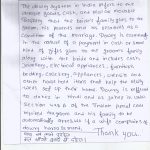 The dowry system in India refers to the
durable goods, cash, and real or movable
property that the bride's family gives to the
groom, his parents and his relatives as a
condition of the marriage. Dowry is essentially
in the nature of a payment in cash or some
kind of gifts given to the groom's family
along with the bride and includes cash,
jewellery, electrical appliances, furniture,
bedding, crockery, appliances, utensils and
other household items that help the newly
weds set up their home. Dowry is referred
to as
Section of the Indian penal code
required the bridegroom and his family to be
automatically arrested if a wife complains of
dowry harassment.
Thank you.